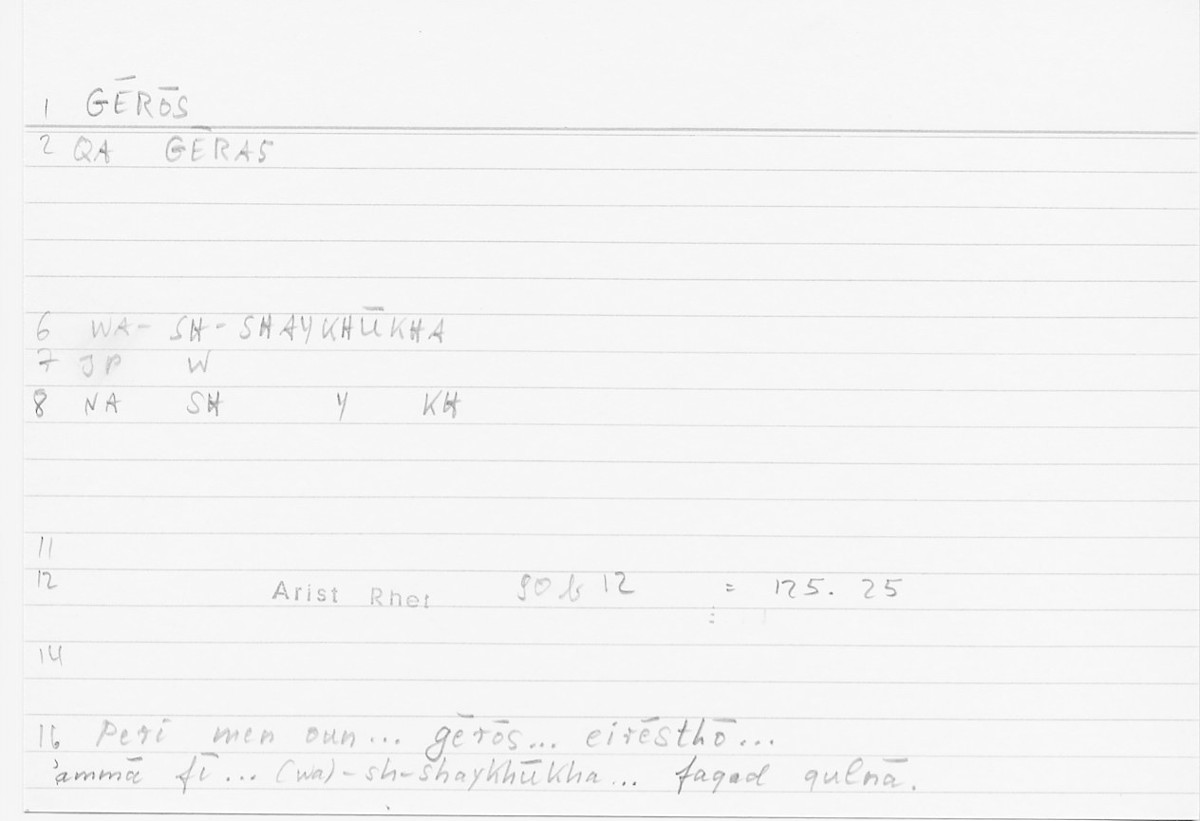 1 GĒRŌS
2 QA GĒRAS
6 WA- SH- SHAYKHŪKHA
7 JP W
8 NA SH Y KH
11
12 Arist Rhet 90 b 12 = 125. 25
14
16 Peri men oun... gērōs... eirēsthō...
'ammā fī... (wa)-sh-shaykhūkha... faqad qulnā.